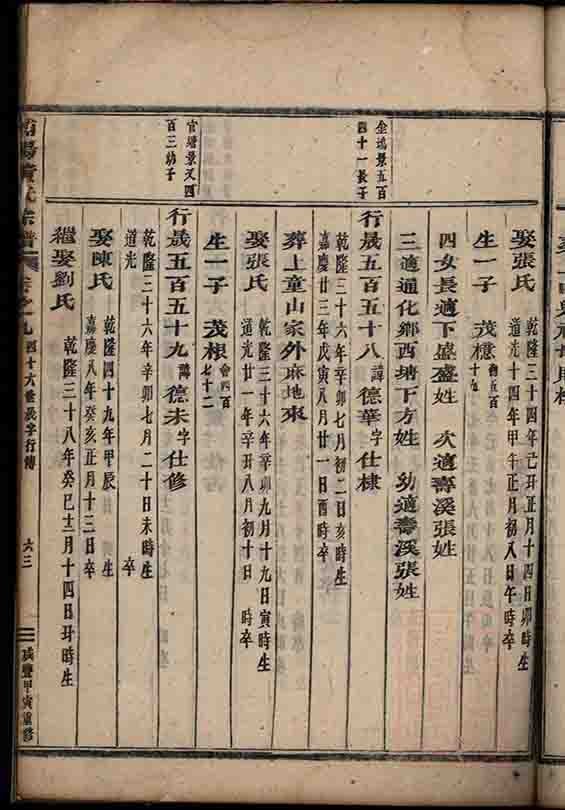 娶張氏 乾隆三十四年己丑正月十四日卯時生
道光十四年甲午正月初八日午時卒
生一子 茂檼
四女長適下盛盛姓 次適壽溪張姓
三適通化鄉西塘下方姓 幼適壽溪張姓
四十一長子
行晟五百五十八 諱德華字仕棣
乾隆三十六年辛卯七月初二日亥時生
嘉慶廿三年戊寅八月廿一日酉時卒
葬上童山家外麻地東
娶張氏 乾隆三十六年辛卯九月十九日寅時生
道光廿一年辛丑八月初十日 時卒
生一子 茂根 會四百七十二
官塘景又四
百三幼子
行晟五百五十九 諱德未字仕修
乾隆三十六年辛卯七月二十日未時生
道光 卒
娶陳氏 乾隆四十九年甲辰 生
嘉慶八年癸亥正月十三日卒
繼娶劉氏 乾隆三十八年癸巳十二月十四日丑時生
氏宗譜 卷之九 四十六世晟字行傳 六三 咸豐甲寅重修